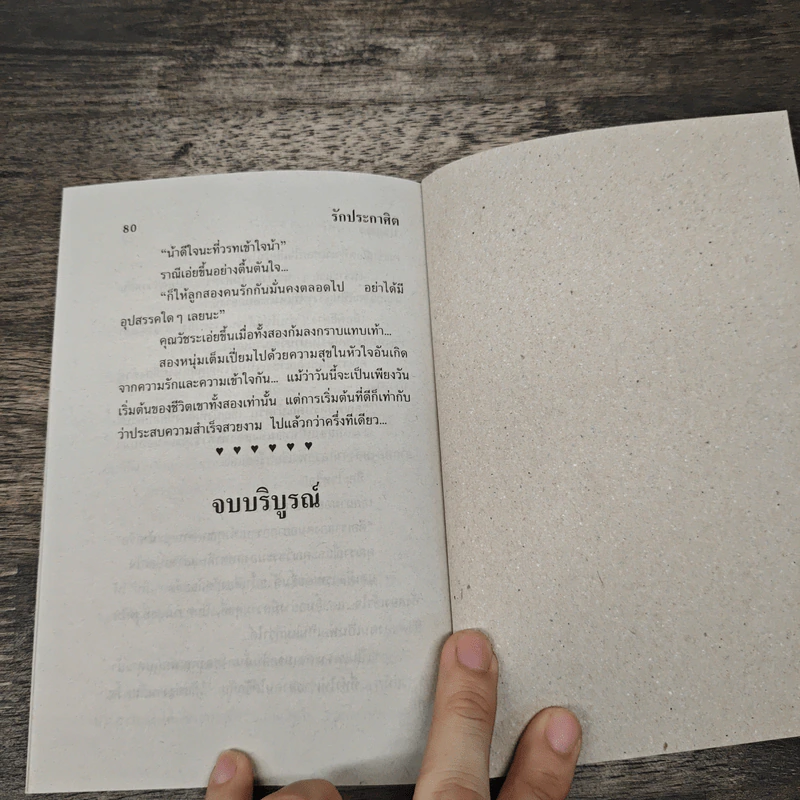 80
รักประกาศิต
“น้าดีใจนะที่วรทเข้าใจน้า”
ราณีเอ่ยขึ้นอย่างตื้นตันใจ...
“ก็ให้ลูกสองคนรักกันมั่นคงตลอดไป อย่าได้มี
อุปสรรคใด ๆ เลยนะ”
คุณวัชระเอ่ยขึ้นเมื่อทั้งสองก้มลงกราบแทบเท้า...
สองหนุ่มเต็มเปี่ยมไปด้วยความสุขในหัวใจอันเกิด
จากความรักและความเข้าใจกัน... แม้ว่าวันนี้จะเป็นเพียงวัน
เริ่มต้นของชีวิตเขาทั้งสองเท่านั้น แต่การเริ่มต้นที่ดีก็เท่ากับ
ว่าประสบความสำเร็จสวยงาม ไปแล้วกว่าครึ่งทีเดียว...
♥ ♥ ♥ ♥ ♥ ♥
จบบริบูรณ์